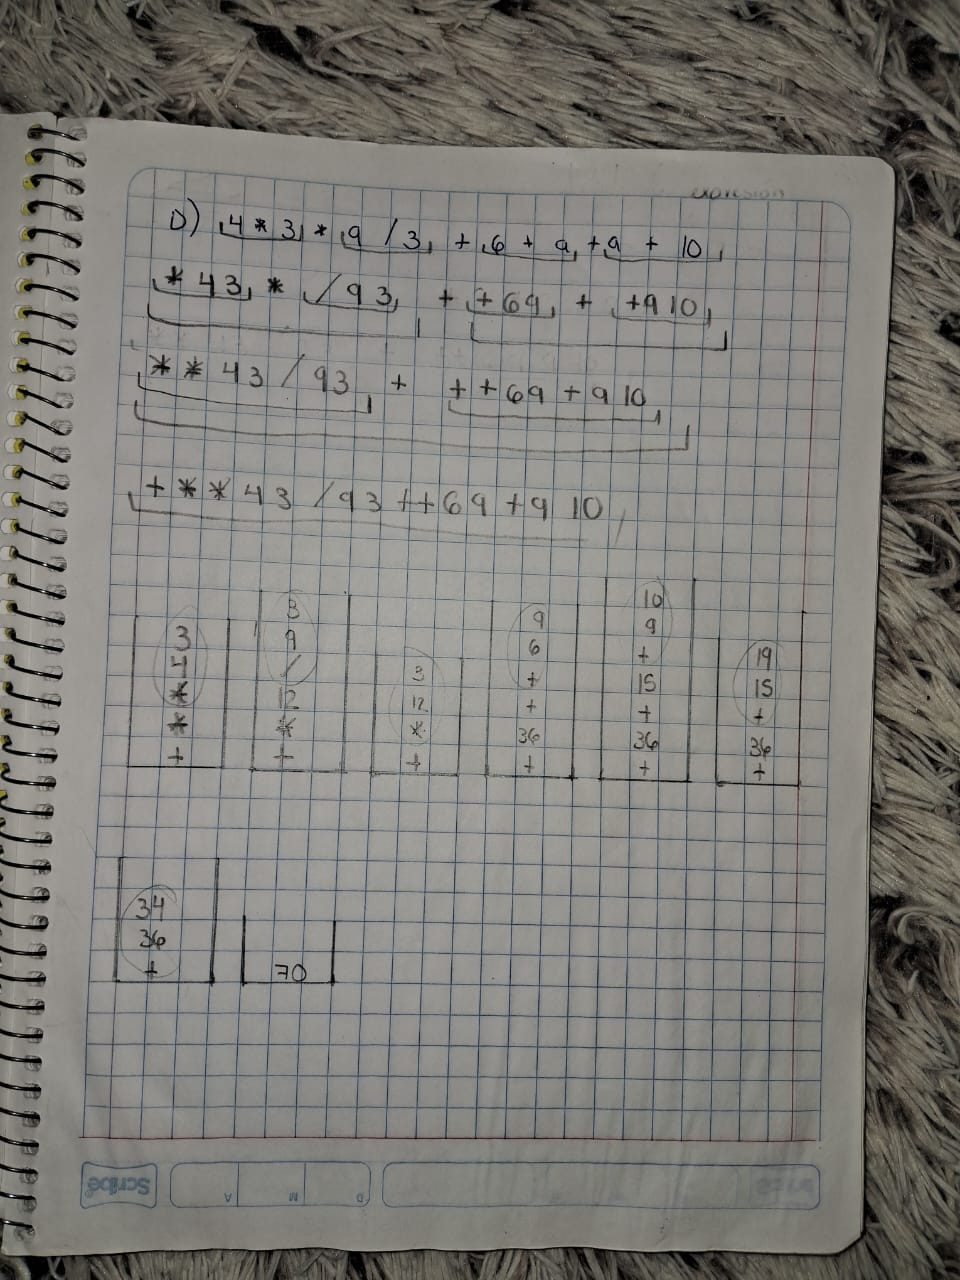 expresion
D) 4 * 3 * 9 / 3 + 6 + 9 + 9 + 10
* 43 * / 93 + + 69 + + 9 10
* * 43 / 93 + + + 69 + 9 10
+ * * 43 / 93 + + 69 + 9 10
3 4 * * +
3 9 / 12 * +
3 12 * +
9 6 + + 36 +
10 9 + 15 + 36 +
19 15 + 36 +
34 36 +
70
Scribe
A M D